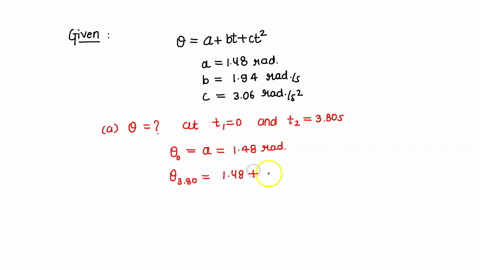 Given :
θ = a + bt + ct²
a = 1.48 rad.
b = 1.94 rad./s
c = 3.06 rad./s²
(a) θ = ? at t₁=0 and t₂ = 3.80s
θ₀ = a = 1.48 rad.
θ₃.₈₀ = 1.48 +